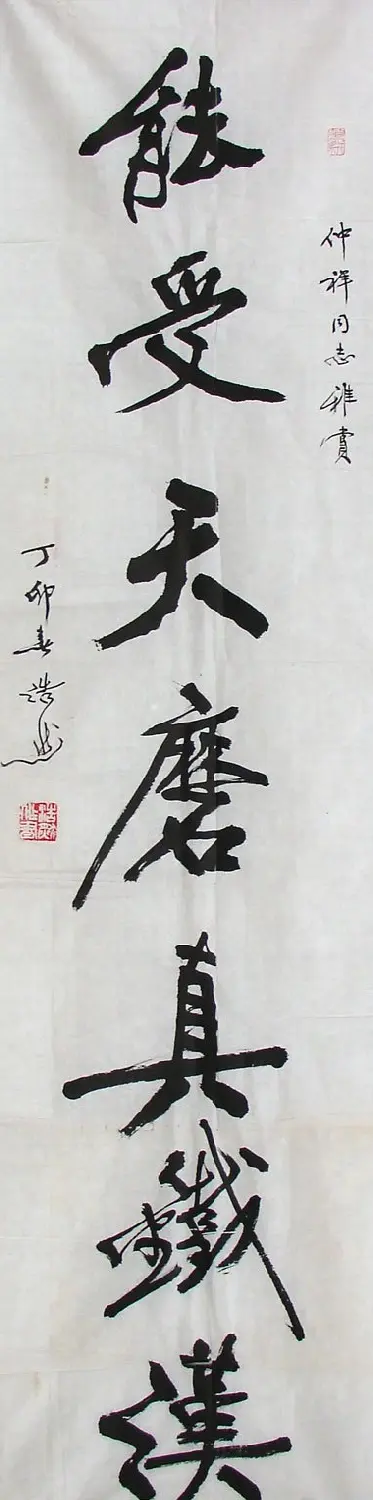 仲祥同志雅賞
能受天磨真鐵漢
丁卯春浩然